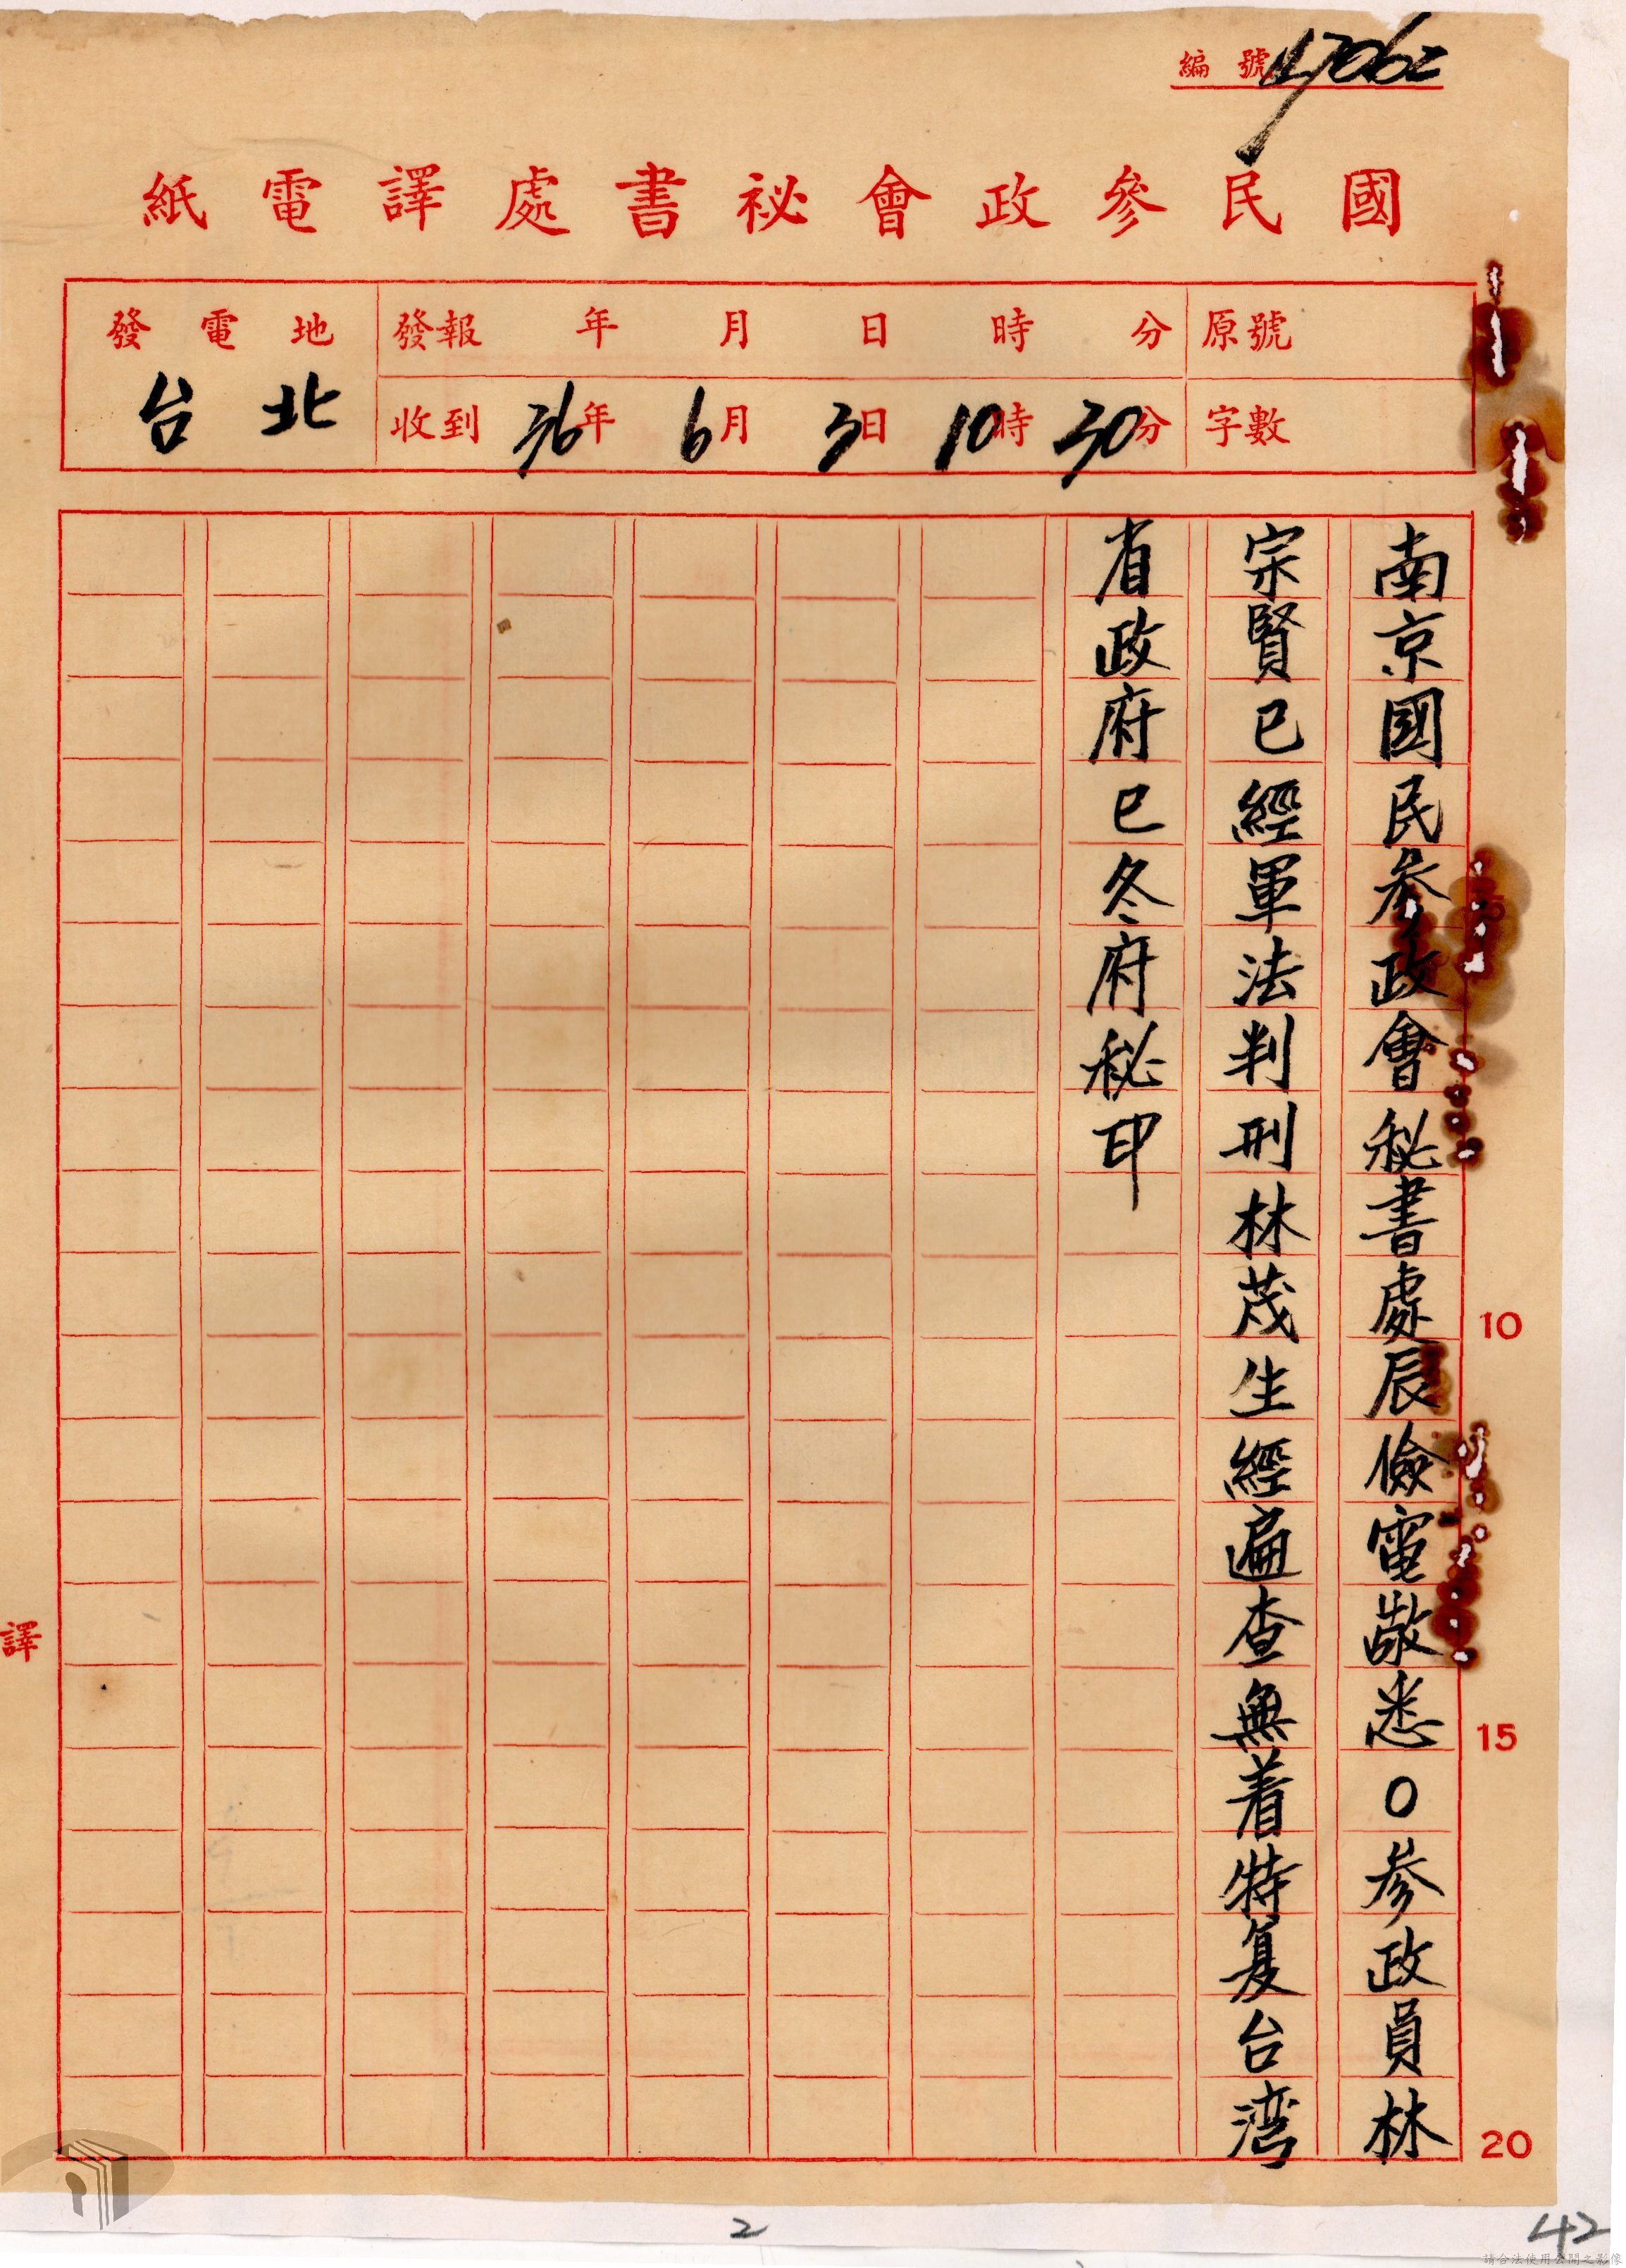 編號 17062
國民參政會祕書處譯電紙
發電地 台北
發報 年 月 日 時 分
收到 36年 6月 3日 10時 30分
原號
字數
南京國民參政會秘書處辰儉電敬悉○參政員林
宗賢已經軍法判刑林茂生經遍查無着特复台湾
省政府巳冬府秘印
10
15
20
譯
2
42
請合法使用公開之影像